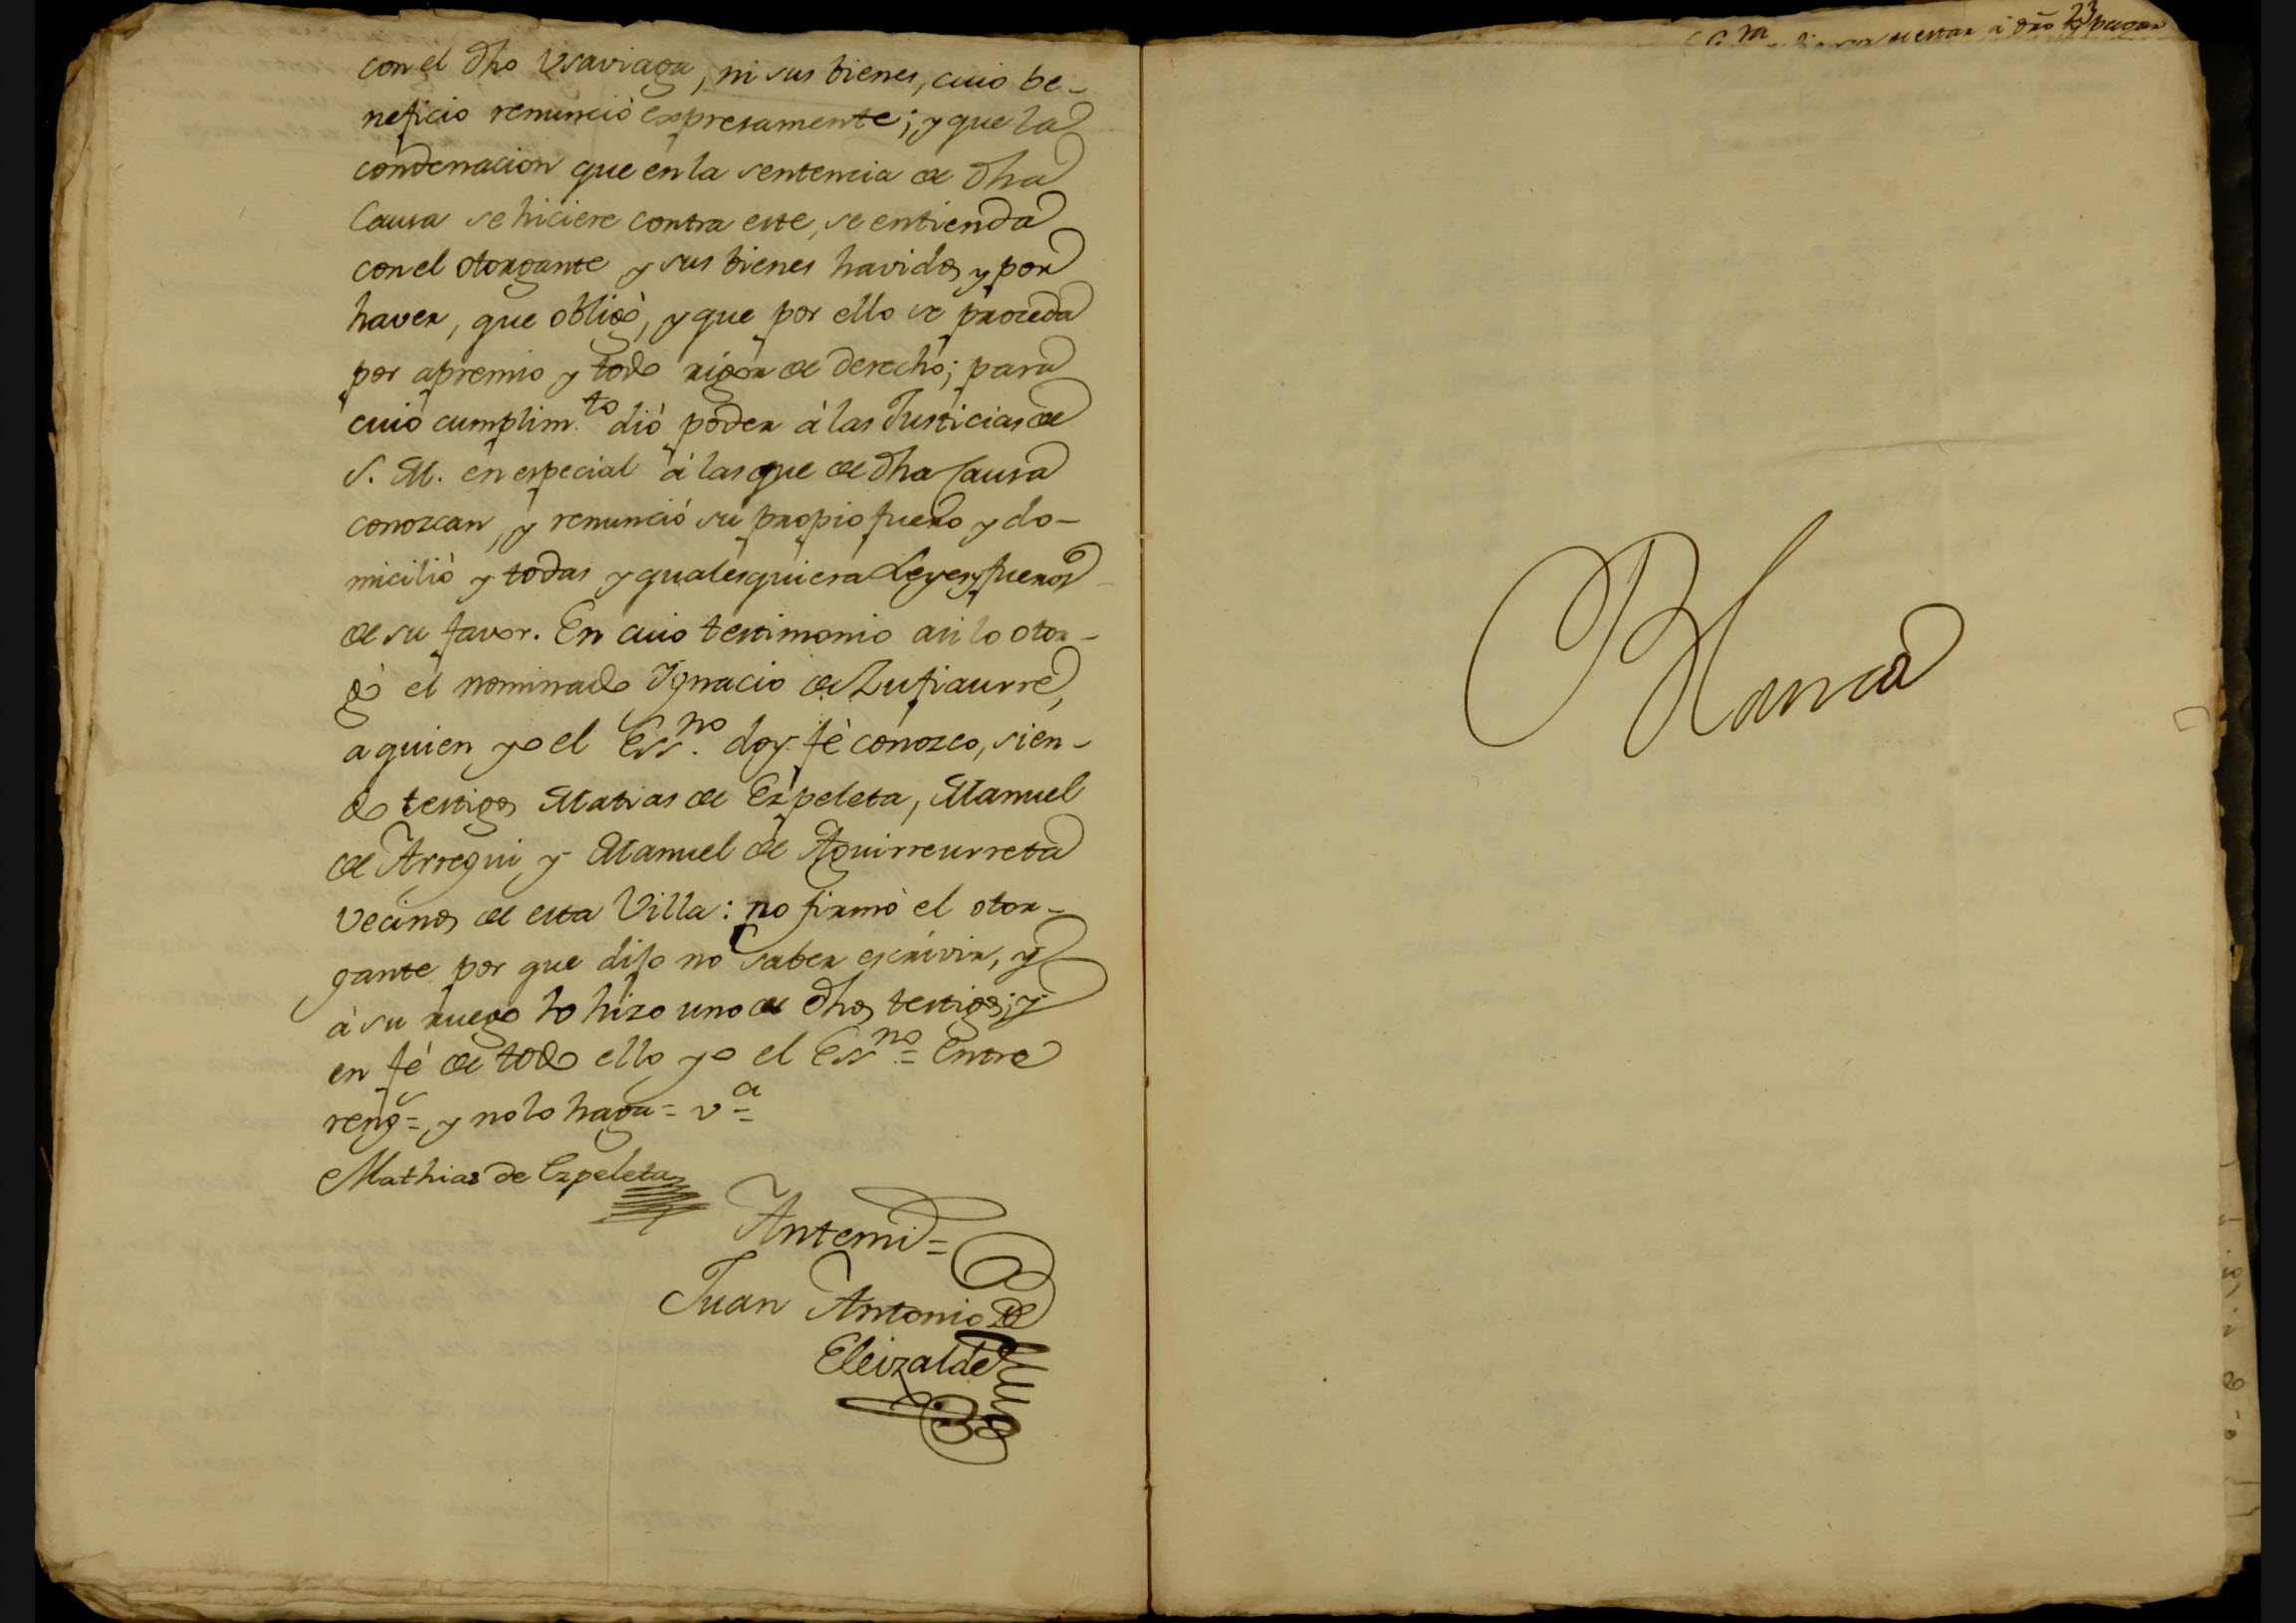 con el dho Vsaviaga, ni sus bienes, cuio be-
neficio renunciò expresamente; y que la
condenacion que en la sentencia de dha
Causa se hiciere contra este, se entienda
con el otorgante y sus bienes havidos y por
haver, que obligò, y que por ello se proceda
por apremio y todo rigor de derecho; para
cuio cumplim.to diò poder à las Justicias de
S. M. en especial à las que de dha Causa
conozcan, y renunciò su propio fuero y do-
micilio y todas y qualesquiera Leyes y fueros
de su favor. En cuio testimonio asi lo otor-
gò el nominado Ignacio de Zufiaurre,
a quien yo el Ess.no doy fè conozco, sien-
do testigos Matias de Ezpeleta, Manuel
de Arregui y Manuel de Aguirreurreta
Vecinos de esta Villa: no firmò el otor-
gante por que dijo no saber escrivir, y
à su ruego lo hizo uno de dhos testigos; y
en fè de todo ello yo el Ess.no = Entre
reng.s = y no lo haga = v.a =
Mathias de Ezpeleta
Antemi =
Juan Antonio de
Eleizalde
23
estar à dro y pagar
Blanca